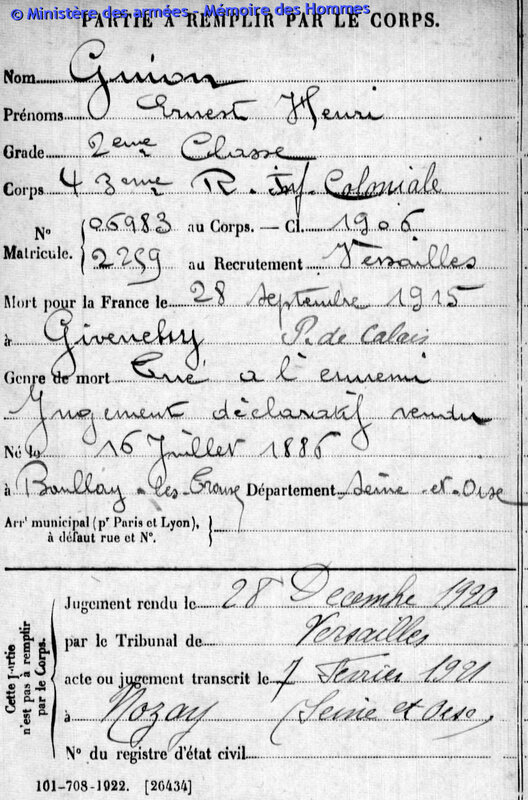 © Ministère des armées - Mémoire des Hommes
PARTIE À REMPLIR PAR LE CORPS.
Nom Guion
Prénoms Ernest Henri
Grade 2eme Classe
Corps 43eme R. Inf. Coloniale
N° Matricule. { 06983 au Corps. — Cl. 1906
2259 au Recrutement Versailles
Mort pour la France le 28 septembre 1915
à Givenchy P. de Calais
Genre de mort Tué a l'ennemi
Jugement déclaratif rendu
Né le 16 Juillet 1886
à Boullay-les-Troux Département Seine-et-Oise
Arrt municipal (pr Paris et Lyon), à défaut rue et N°. }
Cette partie n'est pas à remplir par le Corps. {
Jugement rendu le 28 Decembre 1920
par le Tribunal de Versailles
acte ou jugement transcrit le 7 Février 1921
à Nozay (Seine et Oise)
N° du registre d'état civil
101-708-1922. [26434]